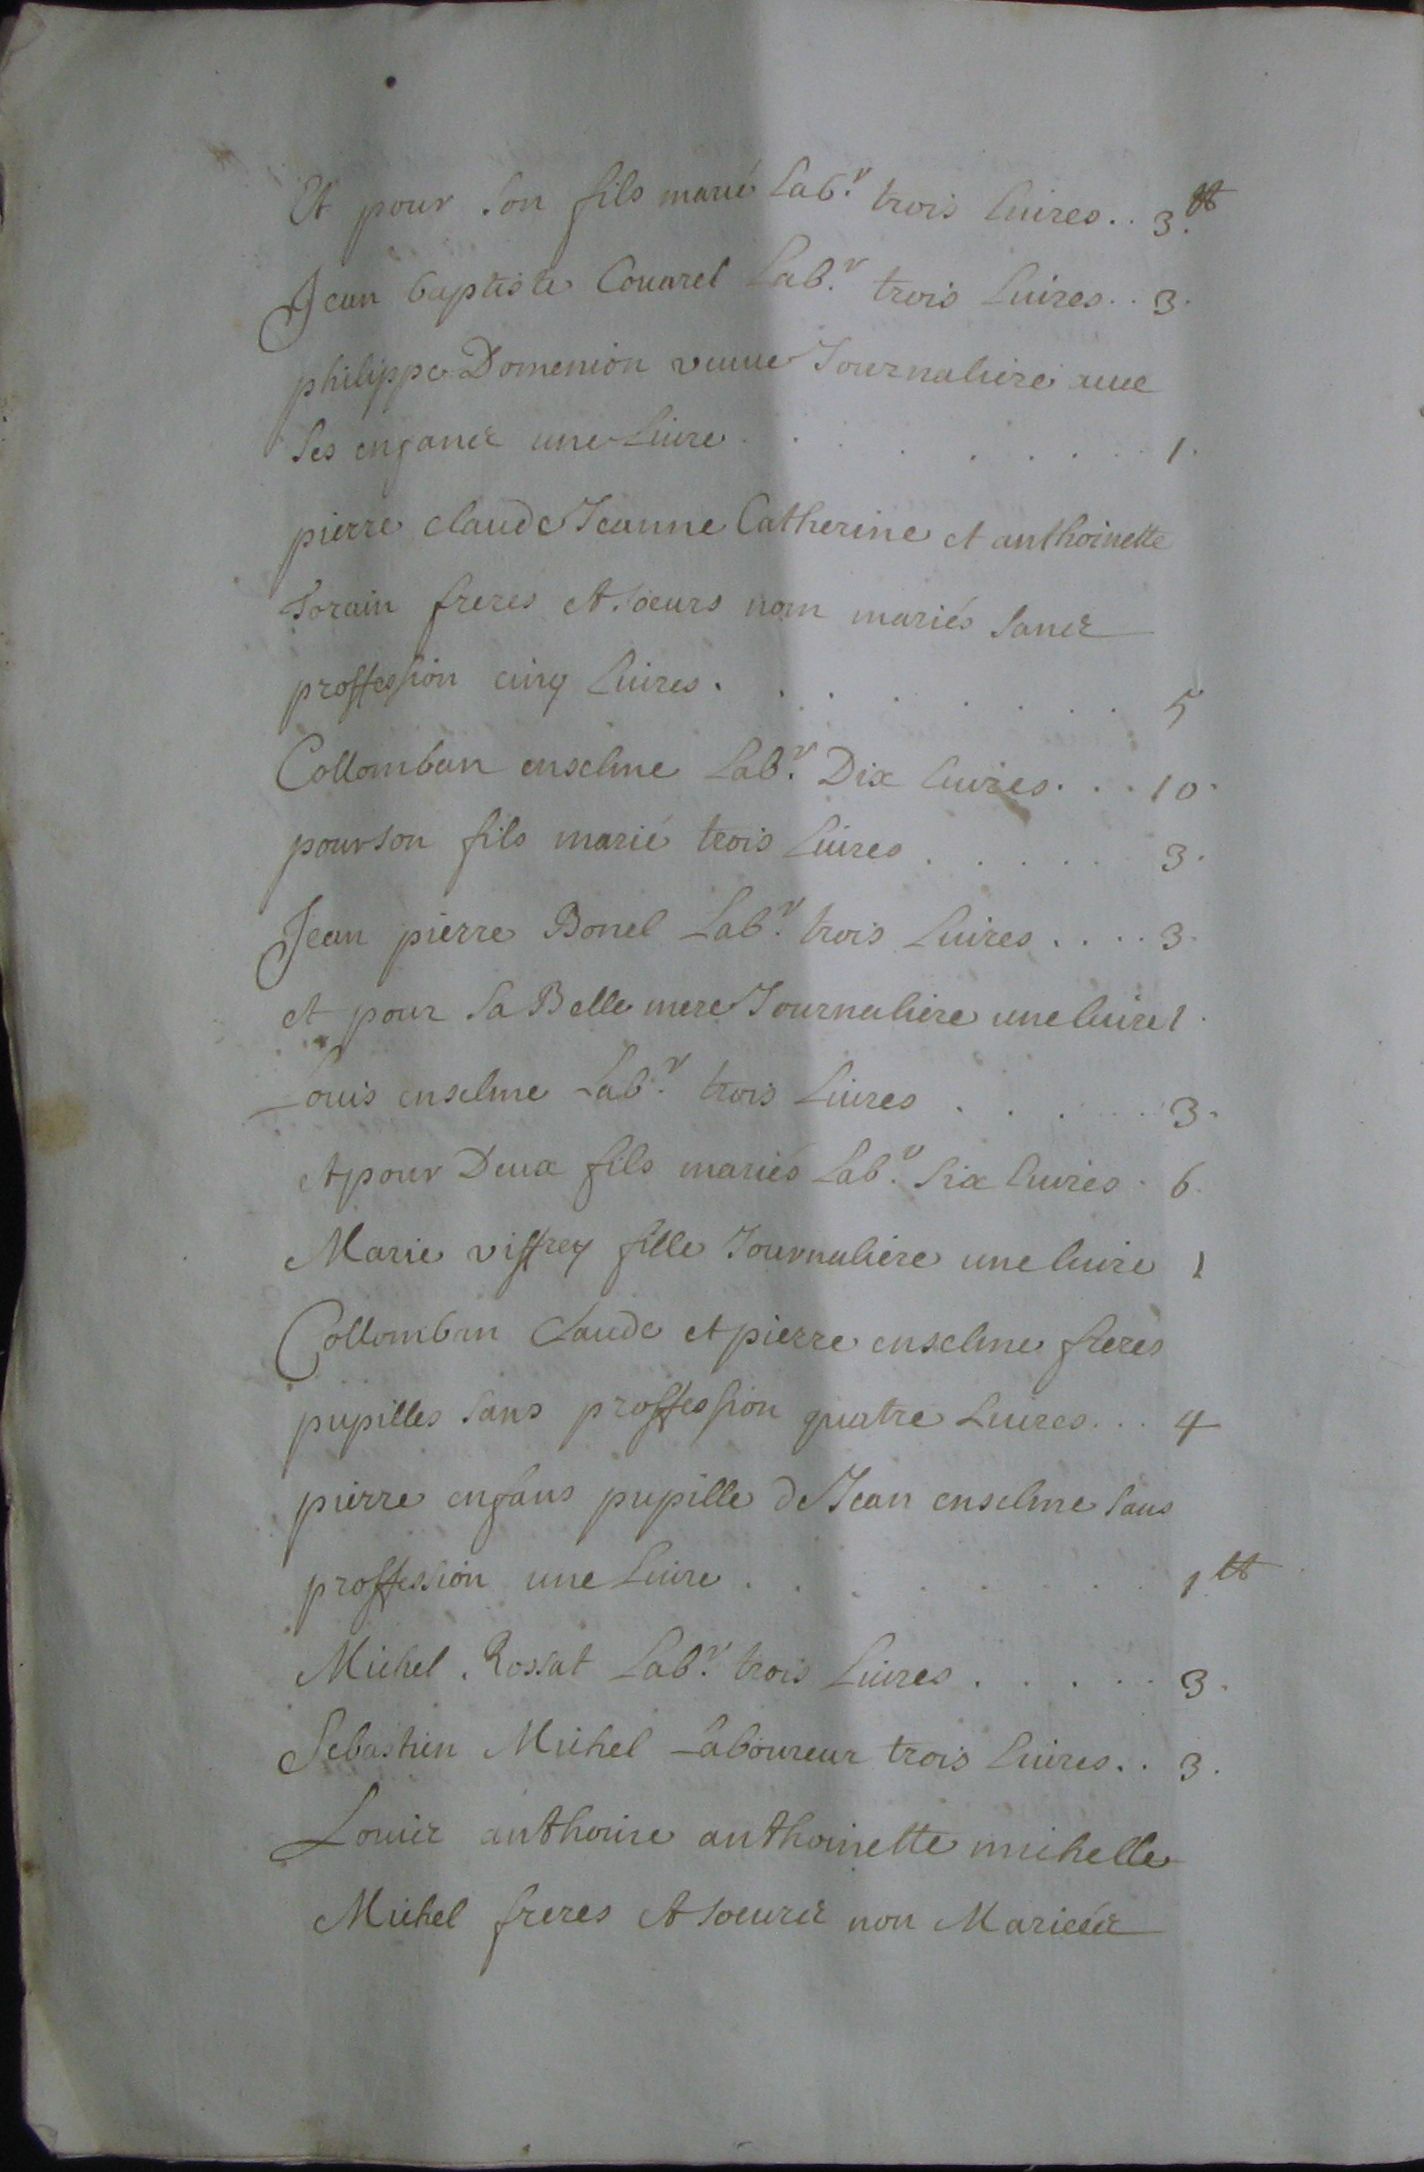 Et pour son fils marié Lab.r trois livres.. 3.tt
Jean baptiste Couarel Lab.r trois livres.. 3.
philippe Domenion veuve Journaliere avec
ses enfancz une Livre . . . . . . . . 1.
pierre claude Jeanne Catherine et anthoinette
Sorain freres et soeurs nom mariés sancz
proffession cinq livres . . . . . . . . 5
Collomban enselme Lab.r Dix livres. . . 10.
pour son fils marié trois livres . . . . . 3.
Jean pierre Bonel Lab.r trois livres . . . . 3.
et pour sa Belle mere Journaliere une livre 1.
Louis enselme Lab.r trois Livres . . . . . 3.
et pour Deux fils mariés Lab.r six livres . 6.
Marie viffrey fille Journaliere une livre 1
Collomban Claude et pierre enselme freres
pupilles sans proffession quatre Livres... 4
pierre enfans pupille de Jean enselme sans
proffession une Livre . . . . . . . . 1tt
Michel Rossat Lab.r trois Livres . . . . . 3.
Sebastien Michel Laboureur trois livres.. 3.
Louicz anthoine anthoinette michelle
Michel freres et soeurcz non Mariéecz